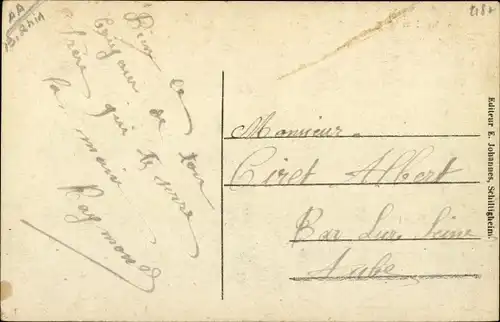 Bien le
bonjour de ton
frère qui te serre
la main
Raymond
Monsieur
Ciret Albert
Bar sur Seine
Aube
Editeur E. Johannes, Schiltigheim.